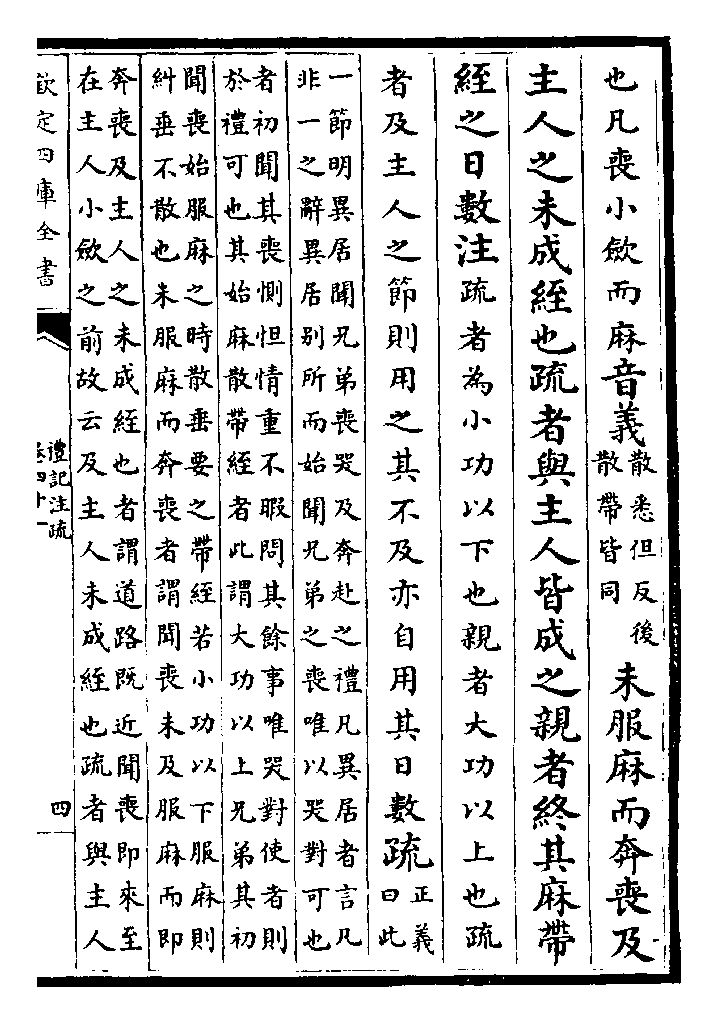 也凡喪小斂而麻音義散悉但反後散帶皆同未服麻而奔喪及
主人之未成絰也疏者與主人皆成之親者終其麻帶
絰之日數注疏者為小功以下也親者大功以上也疏
者及主人之節則用之其不及亦自用其日數疏正義曰此
一節明異居聞兄弟喪哭及奔赴之禮凡異居者言凡
非一之辭異居別所而始聞兄弟之喪唯以哭對可也
者初聞其喪惻怛情重不暇問其餘事唯哭對使者則
於禮可也其始麻散帶絰者此謂大功以上兄弟其初
聞喪始服麻之時散垂要之帶絰若小功以下服麻則
糾垂不散也未服麻而奔喪者謂聞喪未及服麻而即
奔喪及主人之未成絰也者謂道路既近聞喪即來至
在主人小斂之前故云及主人未成絰也疏者與主人
欽定四庫全書
禮記注疏
卷四十一
四